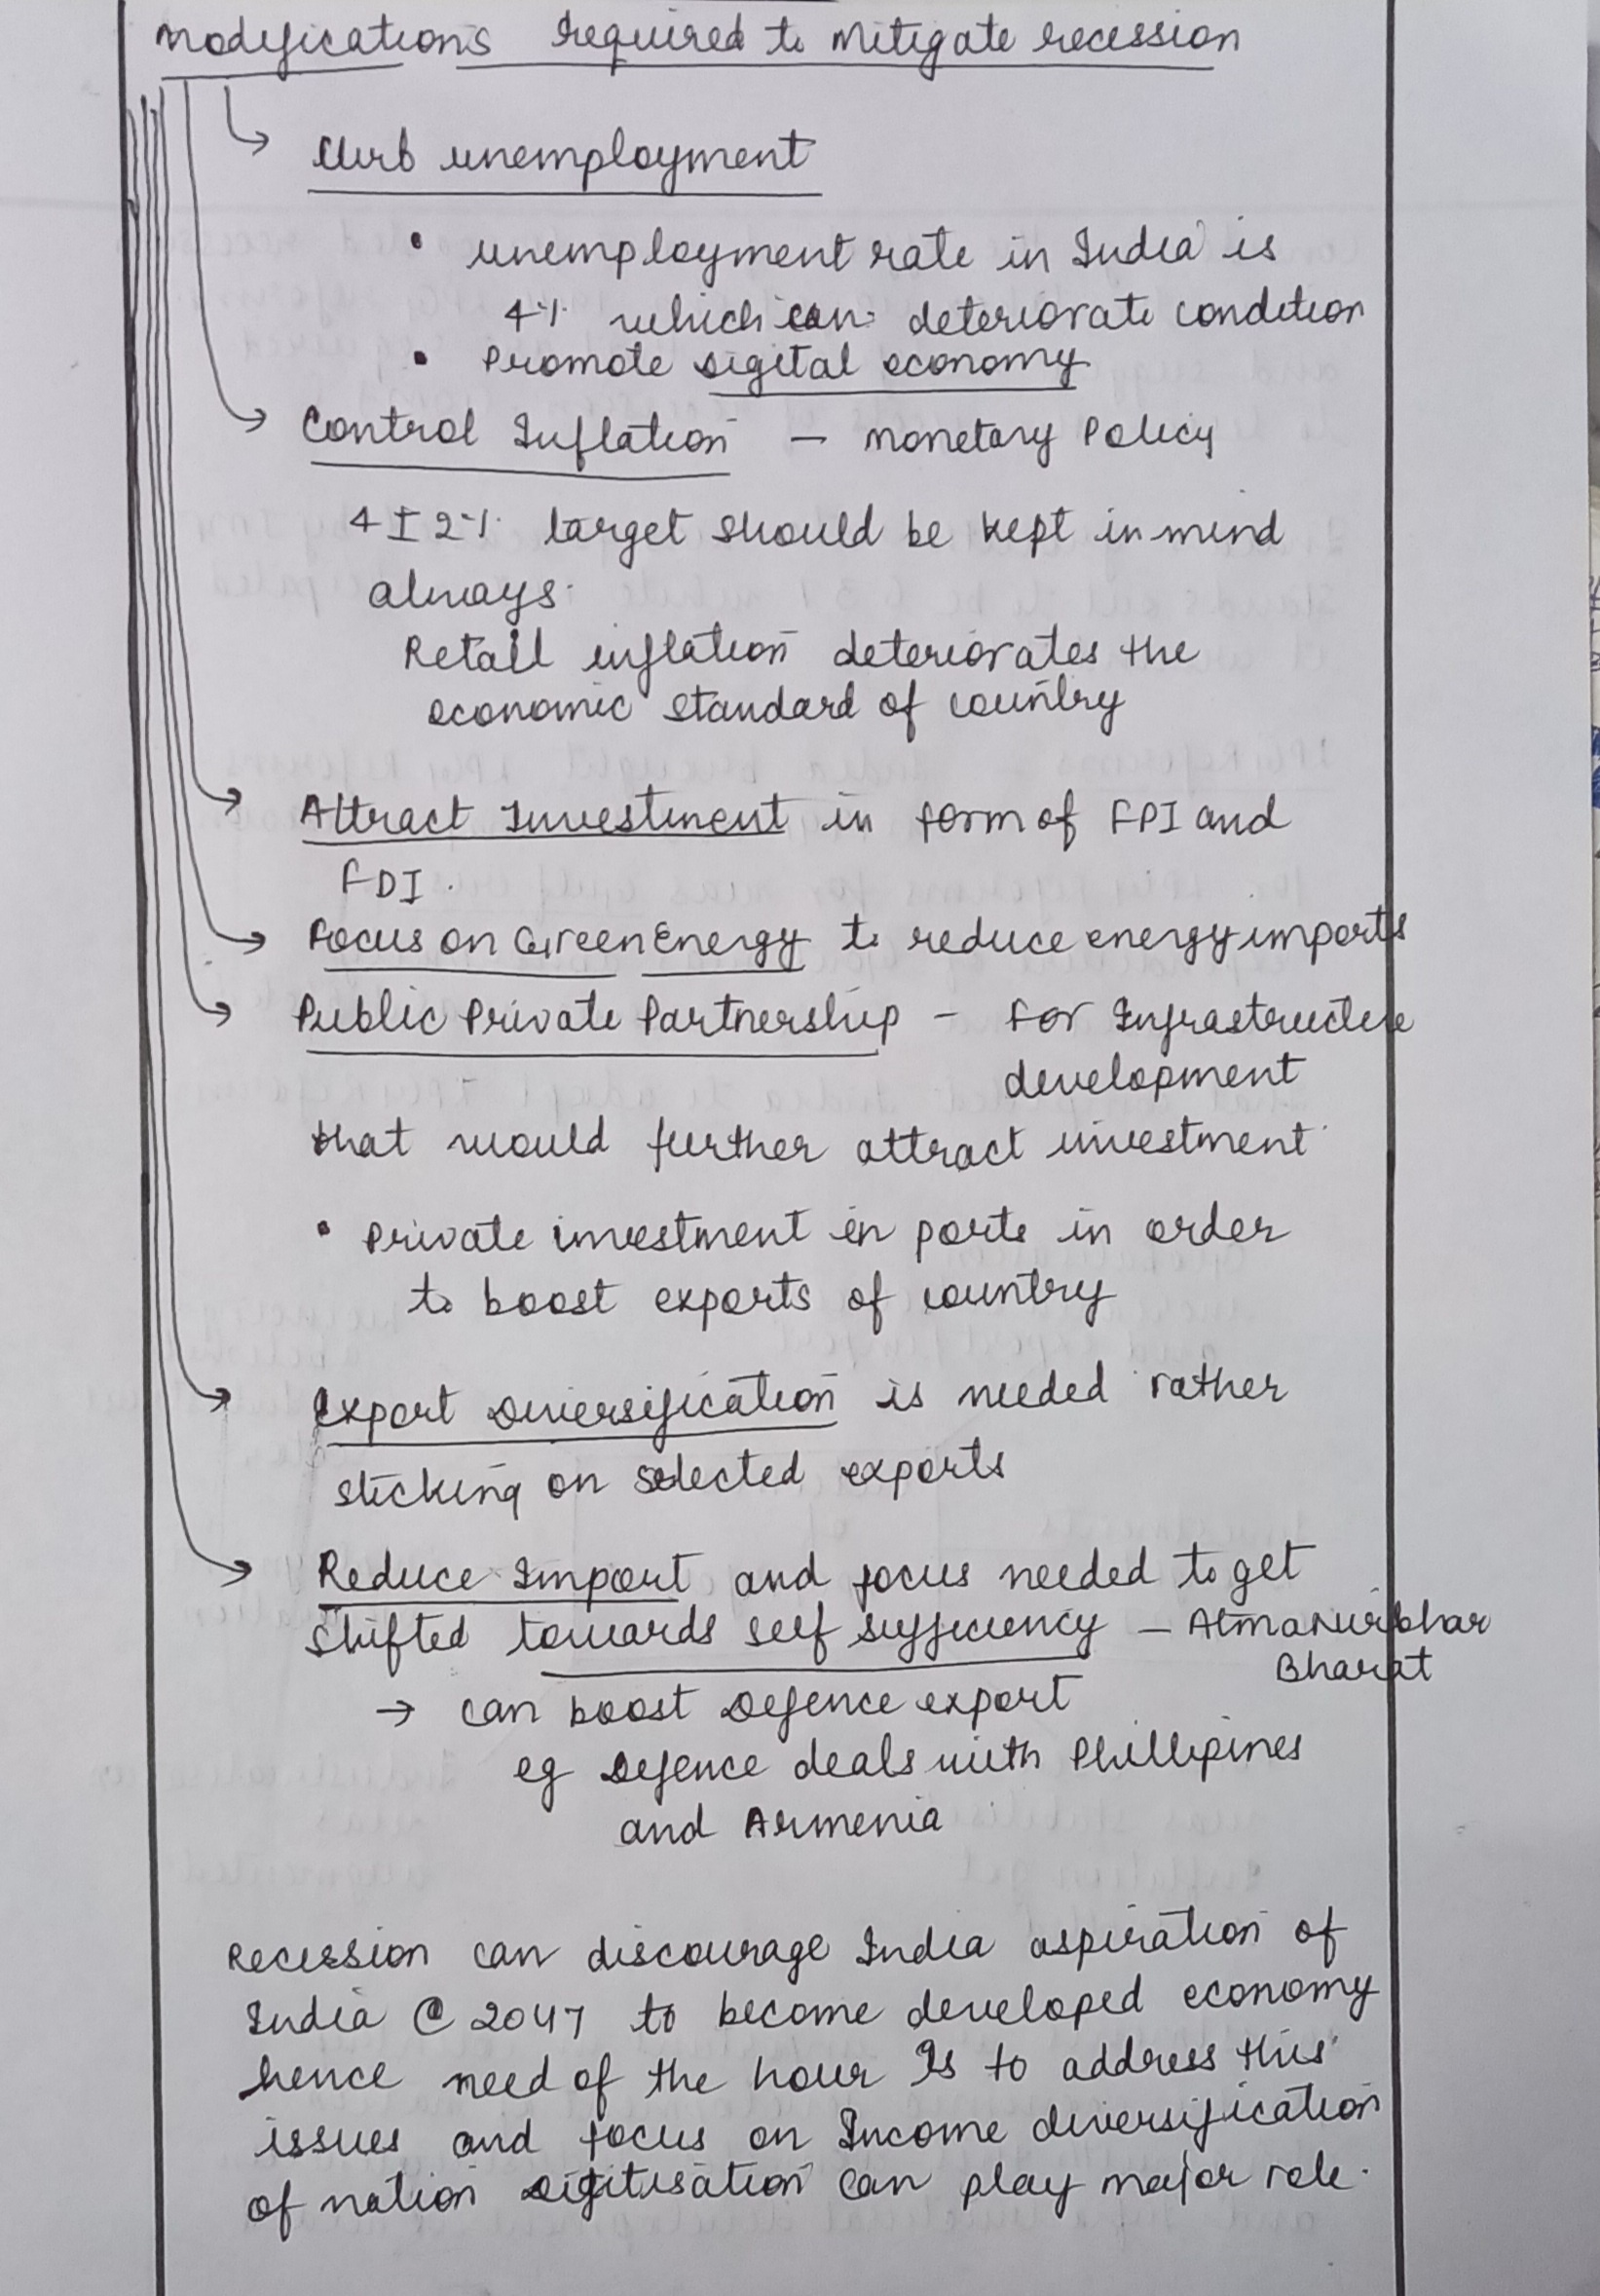 Modifications required to Mitigate recession
Curb unemployment
• unemployment rate in India is
4% which can deteriorate condition
• Promote digital economy
Control Inflation — Monetary Policy
4 ± 2% target should be kept in mind
always.
Retail inflation deteriorates the
economic standard of country
Attract Investment in form of FPI and
FDI.
Focus on Green Energy to reduce energy imports
Public Private Partnership — For Infrastructure
development
that would further attract investment.
• Private investment in ports in order
to boost exports of country
Export Diversification is needed rather
sticking on selected exports
Reduce Import and focus needed to get
shifted towards self sufficiency — Atmanirbhar
Bharat
→ can boost Defence export
eg Defence deals with Phillipines
and Armenia
Recession can discourage India aspiration of
India @ 2047 to become developed economy
hence need of the hour Is to address this
issues and focus on Income diversification
of nation Digitisation can play major role.